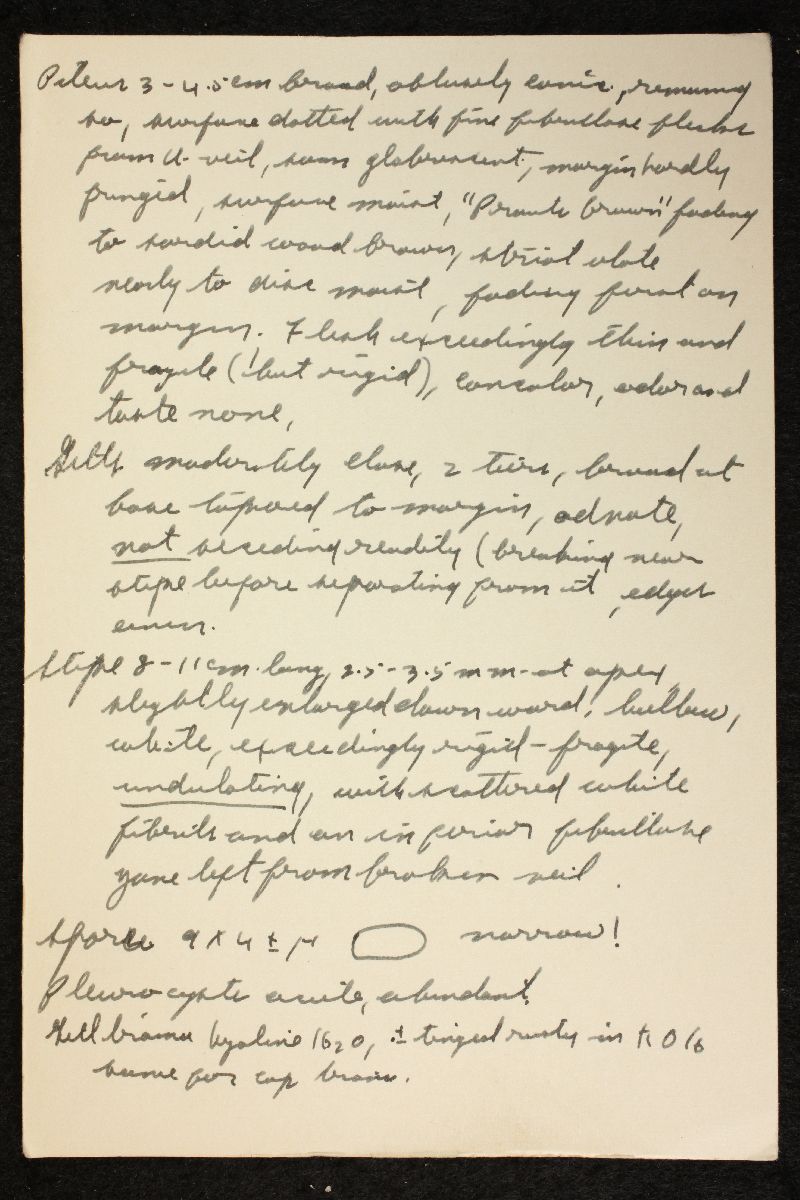 Pileus 3-4.5 cm broad, obtusely conic, remaining
so, surface dotted with fine fibrillose flecks
from U-veil, soon glabrescent, margin hardly
fringed, surface moist, "Prouts brown" fading
to sordid wood brown, striatulate
nearly to disc moist, fading first on
margin. Flesh exceedingly thin and
fragile (but rigid), concolor, odor and
taste none,
Gills moderately close, 2 tiers, broad at
base tapered to margin, adnate,
not seceding readily (breaking near
stipe before separating from it, edges
even.
Stipe 8-11 cm. long, 2.5-3.5 mm-at apex,
slightly enlarged downward, hollow,
white, exceedingly rigid-fragile,
undulating, with scattered white
fibrils and an inferior fibrillose
zone left from broken veil.
Spores 9 x 4 ± µ narrow!
Pleurocysts acute, abundant.
Gill trama hyaline H2O, ± tinged rusty in KOH
same for cap tram.